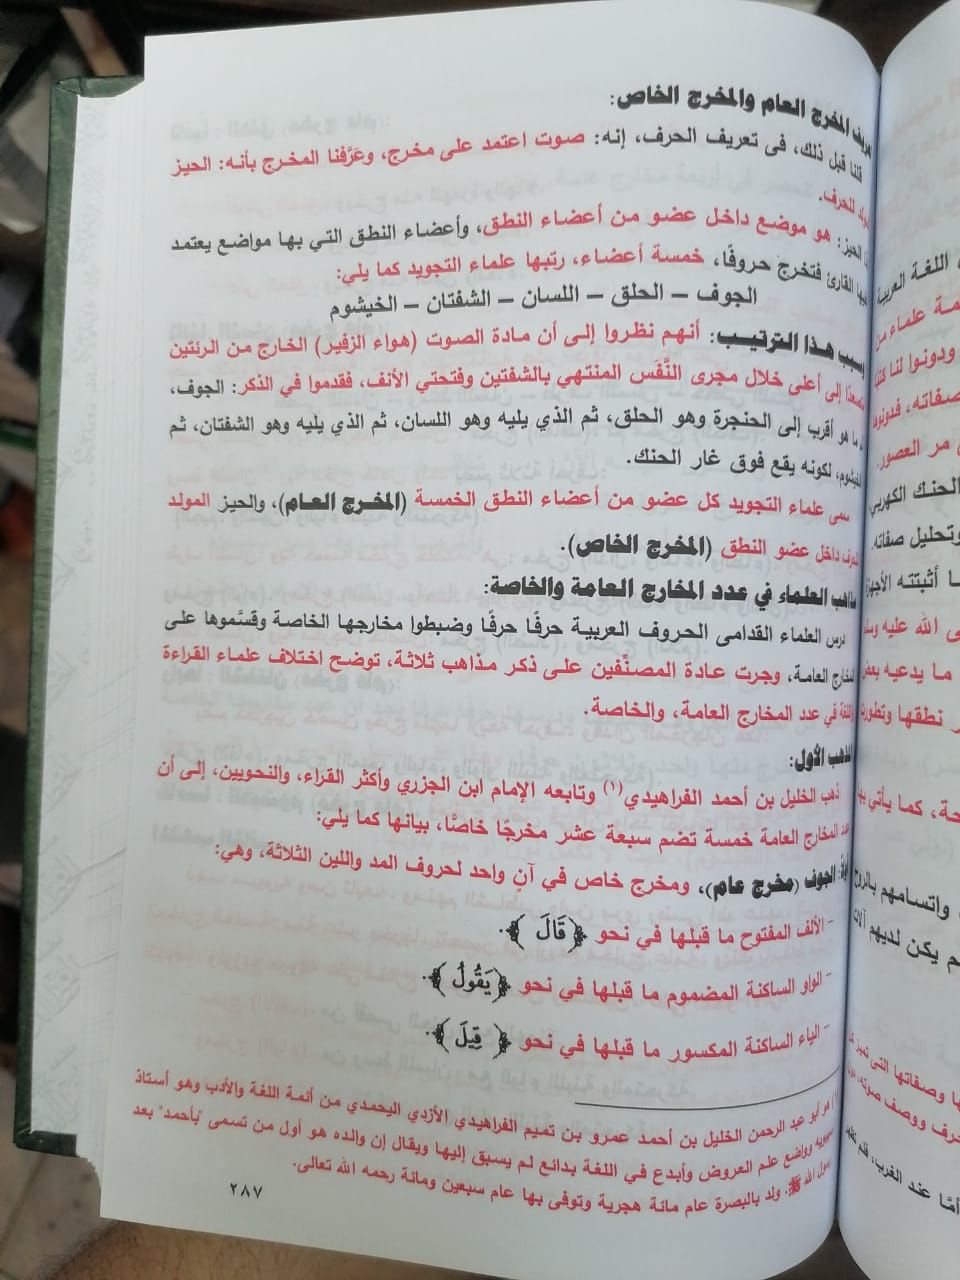 تعريف المخرج العام والمخرج الخاص:
قلنا قبل ذلك، فى تعريف الحرف، إنه: صوت اعتمد على مخرج، وعَرَّفنا المخرج بأنه: الحيز
المولد للحرف.
الحيز: هو موضع داخل عضو من أعضاء النطق، وأعضاء النطق التي بها مواضع يعتمد
فيها القارئ فتخرج حروفًا، خمسة أعضاء، رتبها علماء التجويد كما يلي:
الجوف – الحلق – اللسان – الشفتان – الخيشوم
وسبب هذا الترتيب: أنهم نظروا إلى أن مادة الصوت (هواء الزفير) الخارج من الرئتين
متصعدًا إلى أعلى خلال مجرى النَّفَس المنتهي بالشفتين وفتحتي الأنف، فقدموا في الذكر: الجوف،
ما هو أقرب إلى الحنجرة وهو الحلق، ثم الذي يليه وهو اللسان، ثم الذي يليه وهو الشفتان، ثم
الخيشوم، لكونه يقع فوق غار الحنك.
سمى علماء التجويد كل عضو من أعضاء النطق الخمسة (المخرج العام)، والحيز المولد
داخل عضو النطق (المخرج الخاص).
مذاهب العلماء في عدد المخارج العامة والخاصة:
درس العلماء القدامى الحروف العربية حرفًا حرفًا وضبطوا مخارجها الخاصة وقسَّموها على
المخارج العامة، وجرت عادة المصنِّفين على ذكر مذاهب ثلاثة، توضح اختلاف علماء القراءة
واللغة في عدد المخارج العامة، والخاصة.
المذهب الأول:
ذهب الخليل بن أحمد الفراهيدي(١) وتابعه الإمام ابن الجزري وأكثر القراء، والنحويين، إلى أن
عدد المخارج العامة خمسة تضم سبعة عشر مخرجًا خاصًا، بيانها كما يلي:
أولاً: الجوف (مخرج عام)، ومخرج خاص في آنٍ واحد لحروف المد واللين الثلاثة، وهي:
– الألف المفتوح ما قبلها في نحو ﴿قَالَ﴾.
– الواو الساكنة المضموم ما قبلها في نحو ﴿يَقُولُ﴾.
– الياء الساكنة المكسور ما قبلها في نحو ﴿قِيلَ﴾.
(١) هو أبو عبد الرحمن الخليل بن أحمد عمرو بن تميم الفراهيدي الأزدي اليحمدي من أئمة اللغة والأدب وهو أستاذ
سيبويه وواضع علم العروض وأبدع في اللغة بدائع لم يسبق إليها ويقال إن والده هو أول من تسمى "بأحمد" بعد
رسول الله ﷺ. ولد بالبصرة عام مائة هجرية وتوفى بها عام سبعين ومائة رحمه الله تعالى.
٢٨٧
اللغة العربية
علماء من
ودونوا لنا
صفاته، فدونوها
مر العصور
الحنك الكهربي
وتحليل صفاته
ما أثبتته الأجهزة
الله عليه وسلم
ما يدعيه بعض
نطقها وتطورت
كما يأتي
واتسامهم بالروح
يكن لديهم آلات
وصفاتها التى تميز
ووصف صوته،
أمَّا عند الغرب، فلم تظهر